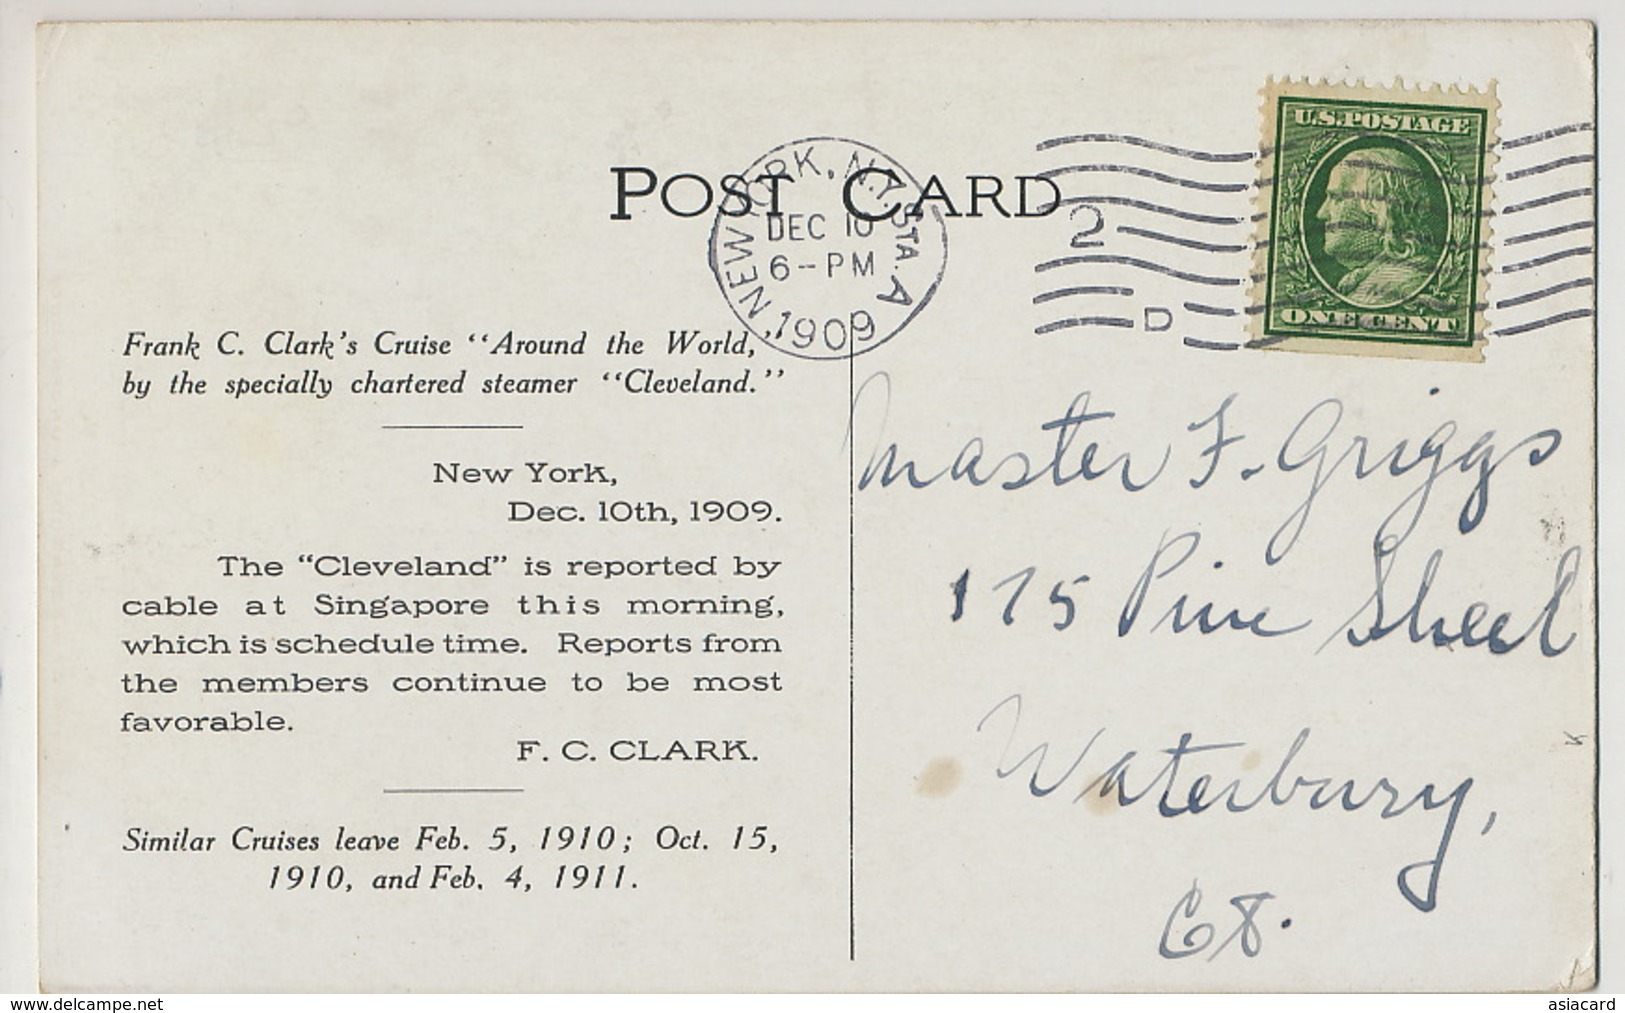 POST CARD
NEW YORK, N.Y. STA. A
DEC 10
6-PM
1909
2
D
U.S. POSTAGE
ONE CENT
Frank C. Clark's Cruise "Around the World,"
by the specially chartered steamer "Cleveland."
New York,
Dec. 10th, 1909.
The "Cleveland" is reported by
cable at Singapore this morning,
which is schedule time. Reports from
the members continue to be most
favorable.
F. C. CLARK.
Similar Cruises leave Feb. 5, 1910; Oct. 15,
1910, and Feb. 4, 1911.
Master F. Griggs
175 Pine Street
Waterbury,
Ct.
www.delcampe.net
asiacard